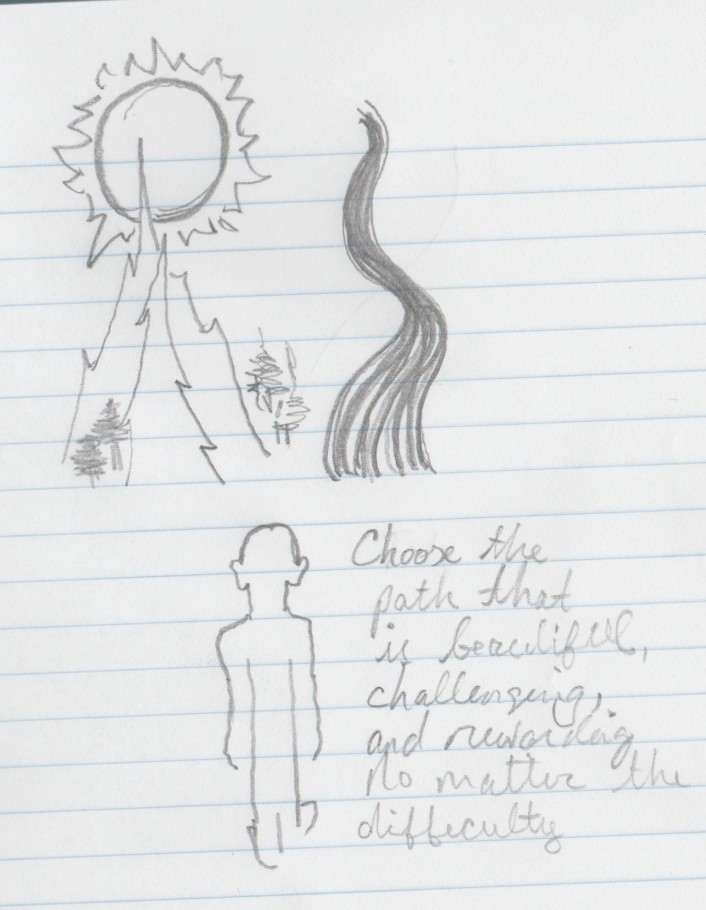 Choose the
path that
is beautiful,
challenging,
and rewarding
no matter the
difficulty